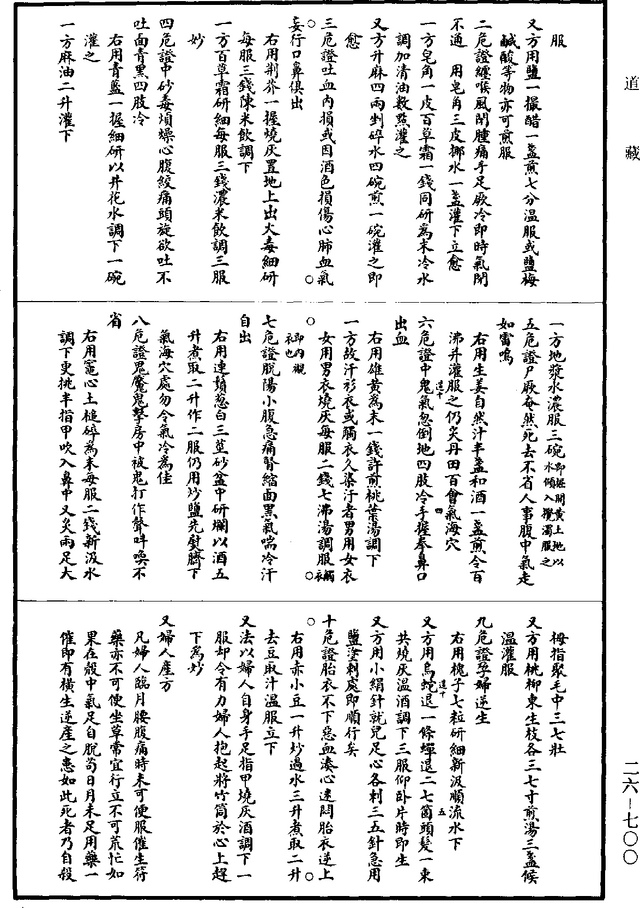 道藏
服
又方用鹽一撮醋一盞煎七分温服或鹽梅
鹹酸等物亦可煎服
二危證纏喉風閉腫痛手足厥冷即時氣閉
不通　用皂角三皮挪水一盞灌下立愈
一方皂角一皮百草霜一錢同研爲末冷水
調加清油數點灌之
又方升麻四兩剉碎水四碗煎一碗灌之即
愈
三危證吐血内損或因酒色損傷心肺血氣
妄行口鼻俱出
右用荆芥一握燒灰置地上出火毒細研
每服三錢陳米飲調下
一方百草霜研細每服三錢濃米飲調三服
妙
四危證中砂毒煩燥心腹絞痛頭旋欲吐不
吐面青黑四肢冷
右用青藍一握細研以井花水調下一碗
灌之
一方麻油二升灌下
一方地漿水濃服三碗即掘開黃土地以水傾入攪濁服之
五危證尸厥奄然死去不省人事腹中氣走
如雷鳴
右用生姜自然汁半盞和酒一盞煎令百
沸并灌服之仍灸丹田百會氣海穴
六危證中鬼氣忽倒地四肢冷手握拳鼻口
出血
右用雄黃爲末一錢許煎桃葉湯調下
一方故汗衫衣或觸衣久染汙者男用女衣
女用男衣燒灰每服二錢七沸湯調服觸衣即内襯衣也
七危證脱陽小腹急痛腎縮面黑氣喘冷汗
自出
右用連鬚葱白三莖砂盆中研爛以酒五
升煮取二升作二服仍用炒鹽先熨臍下
氣海穴處勿令氣冷爲佳
八危證鬼魘鬼擊房中被鬼打作聲呌喚不
省
右用竈心土槌碎爲末每服二錢新汲水
調下更挑半指甲吹入鼻中又灸兩足大
拇指聚毛中三七壯
又方用桃柳東生枝各三七寸煎湯三盞候
温灌服
九危證孕婦逆生
右用槐子七粒研細新汲順流水下
又方用烏蛇退一條蟬退二七箇頭髮一束
共燒灰温酒調下三服仰卧片時即生
又方用小絹針就兒足心各刺三五針急用
鹽塗刺處即順行矣
十危證胎衣不下惡血湊心迷悶胎衣逆上
右用赤小豆一升炒過水三升煮取二升
去豆取汁温服立下
又法以婦人自身手足指甲燒灰酒調下一
服却令有力婦人抱起將竹筒於心上趕
下爲妙
又婦人産方
凡婦人臨月腰腹痛時未可便服催生符
藥亦不可便坐草常宜行立不可荒忙如
果在殼中氣足自脱苟日月未足用藥一
催即有横生逆産之患如此死者乃自殺
二六－七〇〇